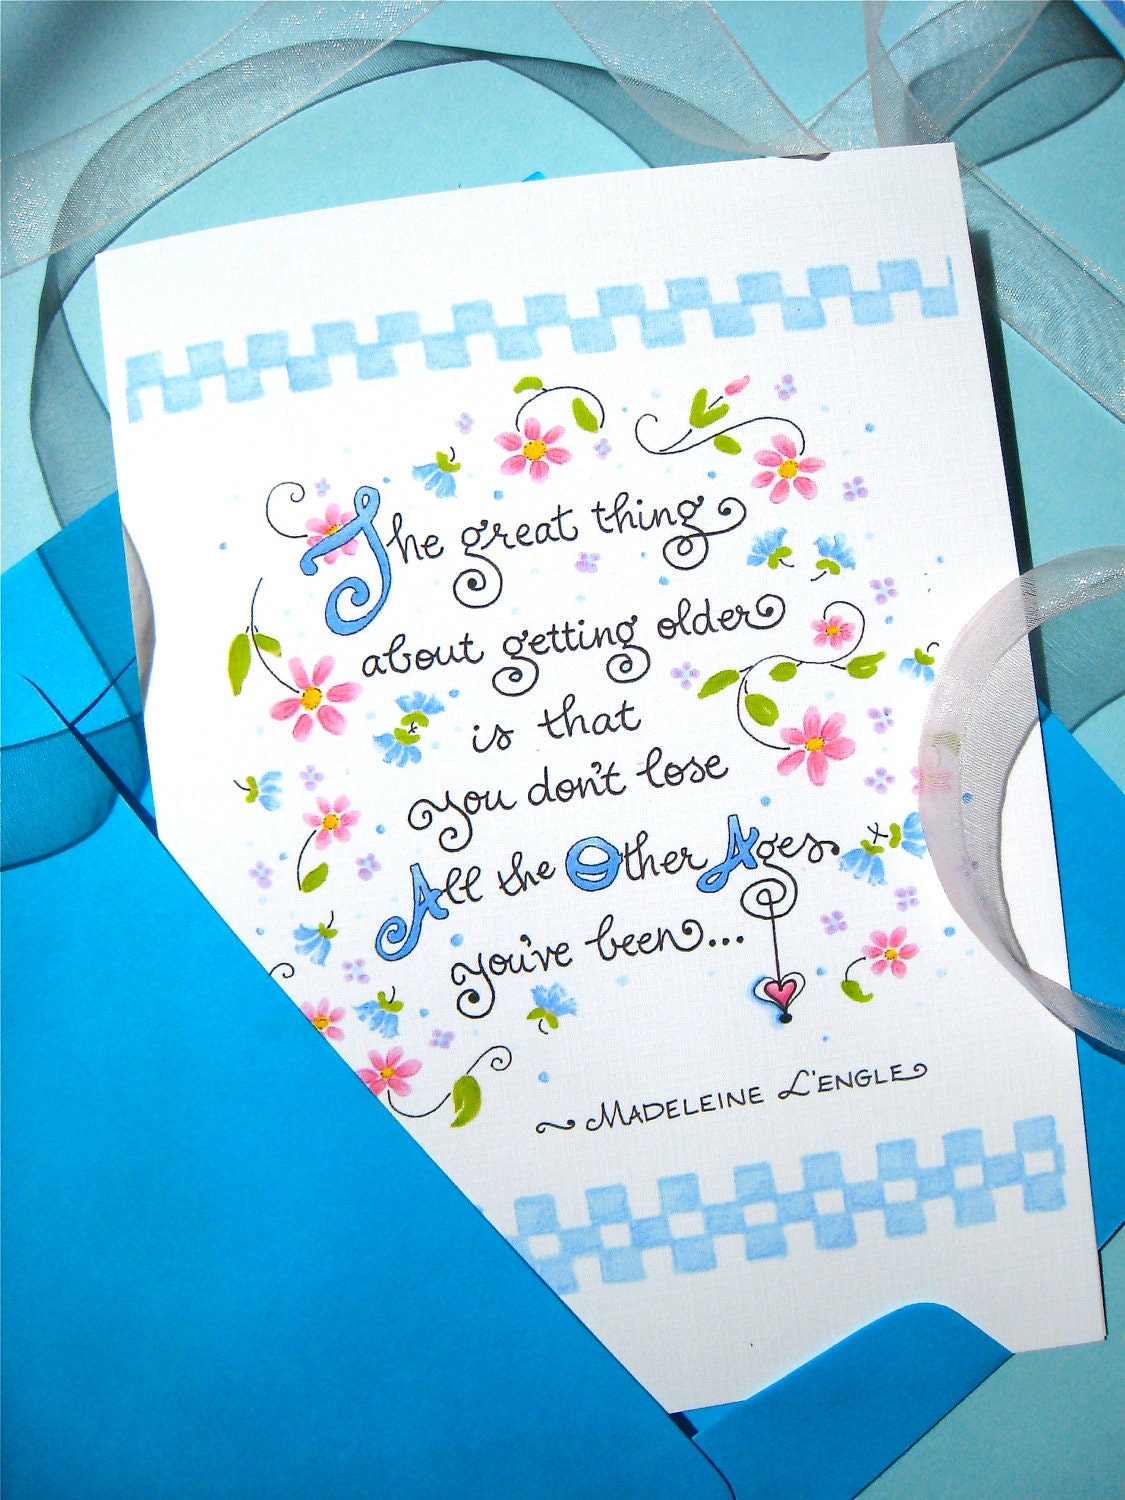 The great thing
about getting older
is that
you don't lose
All the Other Ages
you've been...
~ Madeleine L'Engle